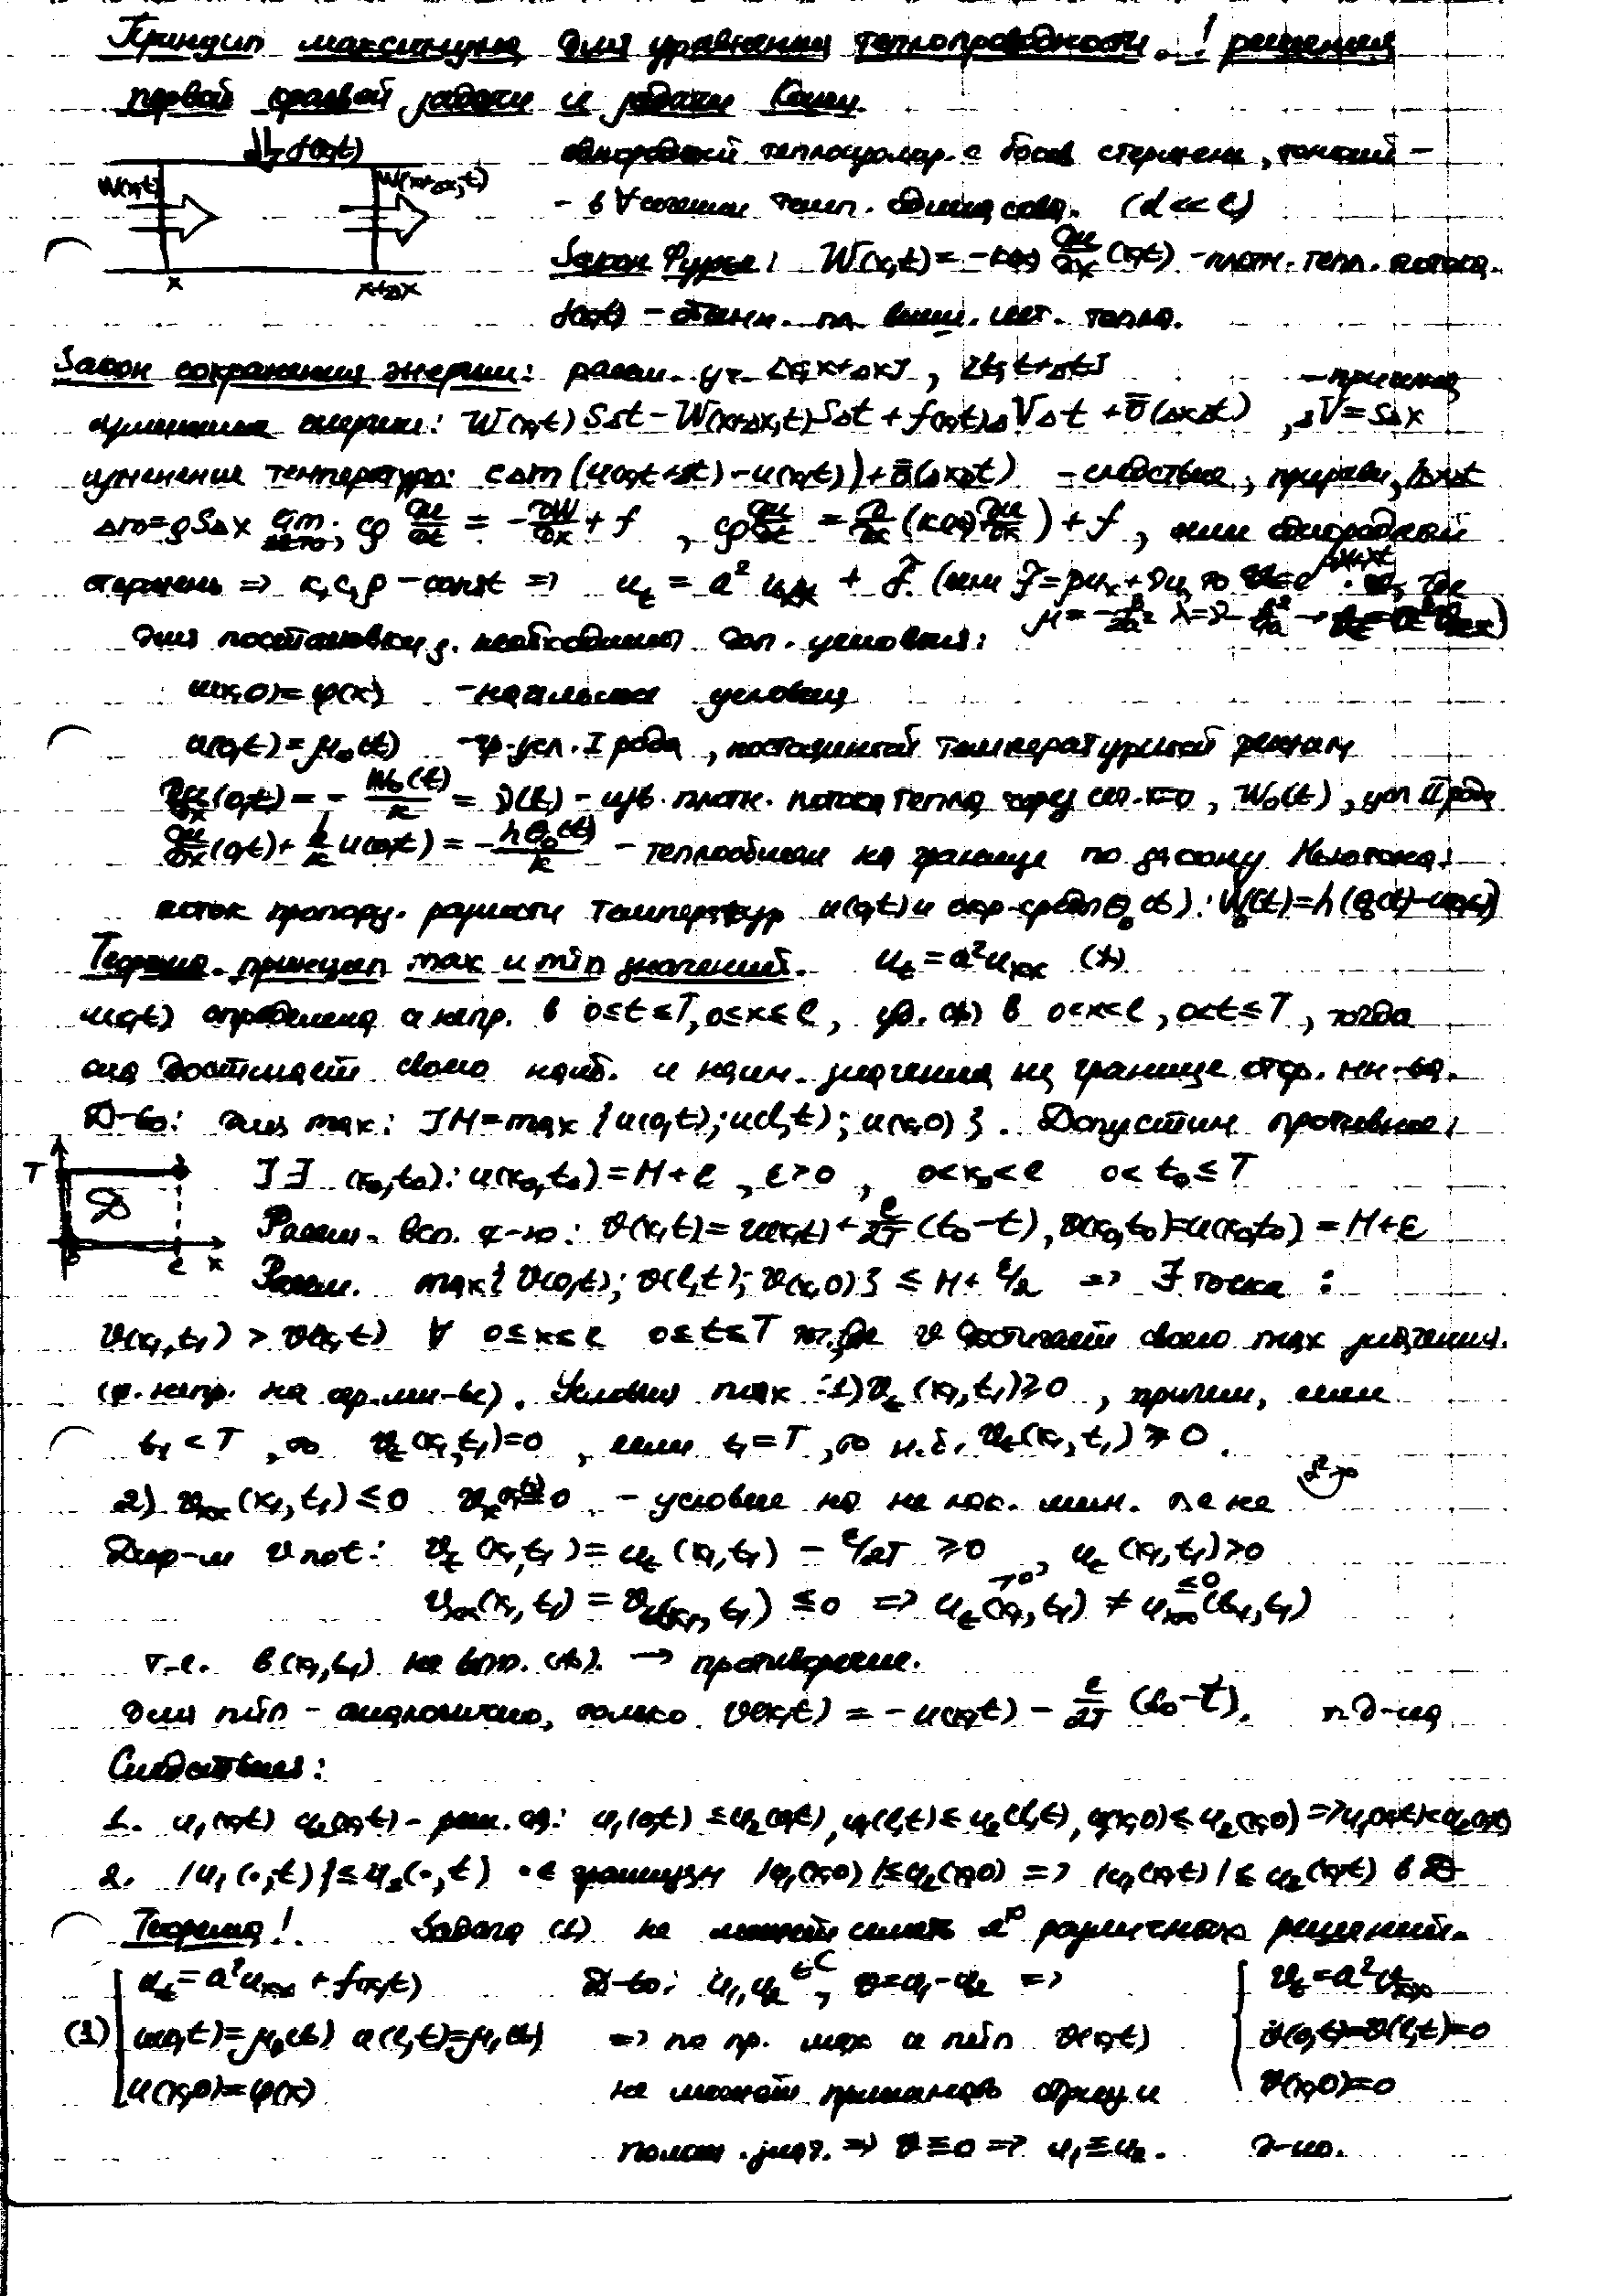 Принцип максимума для уравнения теплопроводности. ! решения
первой краевой задачи и задачи Коши.
f(x,t)
W(x,t) W(x+Δx,t)
x x+Δx
однородный теплоизолир. с боков стержень, тонкий –
– в ∀ сечении темп. одинакова. (d << l)
Закон Фурье: W(x,t) = -k(x) ∂u/∂x (x,t) – плотн. тепл. потока.
f(x,t) – внеш. ист. тепла.
Закон сохранения энергии: рассм. уч. [x, x+Δx], [t, t+Δt] – причина
изменение энергии: W(x,t) SΔt – W(x+Δx,t) SΔt + f(x,t) ΔVΔt + ō(ΔxΔt), ΔV = SΔx
изменение температуры: cΔm (u(x,t+Δt) – u(x,t)) + ō(ΔxΔt) – следствие, приравн., ΔxΔt
Δm = ρSΔx lim cρ ∂u/∂t = -∂W/∂x + f, cρ ∂u/∂t = ∂/∂x (k(x) ∂u/∂x) + f, если однородный
стержень => k, c, ρ – const => u_t = a² u_xx + f̃. (если f̃ = βu_x + γu, то
μ = -β/2a² λ = γ -
Для постановки з. необходимы доп. условия:
u(x,0) = φ(x) – начальные условия
u(0,t) = μ₀(t) – гр. усл. I рода, температурный режим
∂u/∂x (0,t) = - W₀(t)/k = ν(t) – изв. плотн. потока тепла через сеч. x=0, W₀(t), усл II рода
∂u/∂x (0,t) + h/k u(0,t) = - hθ₀(t)/k – теплообмен на границе по закону Ньютона:
поток пропорц. разности температур u(0,t) и окр. среды θ₀(t): W₀(t) = h(θ₀(t) – u(0,t))
Теорема. принцип max и min значений. u_t = a² u_xx (*)
u(x,t) определена и непр. в 0≤t≤T, 0≤x≤l, уд. (*) в 0<x<l, 0<t≤T, тогда
она достигает своего наиб. и наим. значения на границе огр. мн-ва.
Д-во: Для max: ] M = max {u(0,t); u(l,t); u(x,0)}. Допустим противное:
T D 0 l x
] ∃ (x₀,t₀): u(x₀,t₀) = M + ε, ε>0, 0<x₀<l 0<t₀≤T
Рассм. всп. ф-ю: v(x,t) = u(x,t) + ε/2T (t₀ – t), v(x₀,t₀) = u(x₀,t₀) = M + ε
Рассм. max{v(0,t); v(l,t); v(x,0)} ≤ M + ε/2 => ∃ точка:
v(x₁,t₁) > v(x,t) ∀ 0≤x≤l 0≤t≤T где v достигает своего max значения.
(ф. непр. на огр. мн-ве). Условия max: 1) v_t (x₁,t₁) ≥ 0, причем, если
t₁ < T, то v_t (x₁,t₁) = 0, если t₁ = T, то м.б. v_t (x₁,t₁) ≥ 0.
2) v_xx (x₁,t₁) ≤ 0 v_x = 0 – условие на не лок. мин.
Диф-м v по t: v_t (x₁,t₁) = u_t (x₁,t₁) – ε/2T ≥ 0, u_t (x₁,t₁) > 0
v_xx (x₁,t₁) = u_xx (x₁,t₁) ≤ 0 => u_t (x₁,t₁) ≠ u_xx (x₁,t₁) >0 ≤0
т.е. в (x₁,t₁) не вып. (*). → противоречие.
Для min – аналогично, только v(x,t) = - u(x,t) – ε/2T (t₀ – t).
Следствия:
1. u₁(x,t) u₂(x,t) – реш. ур: u₁(0,t) ≤ u₂(0,t), u₁(l,t) ≤ u₂(l,t), u₁(x,0) ≤ u₂(x,0) => u₁(x,t) ≤ u₂(x,t)
2. |u₁(•,t)| ≤ u₂(•,t) • ∈ границам |u₁(x,0)| ≤ u₂(x,0) => |u₁(x,t)| ≤ u₂(x,t) в D
Теорема !. Задача (1) не может иметь 2ух различных решений.
u_t = a² u_xx + f(x,t) Д-во: u₁, u₂ ∈ C, v = u₁ – u₂ => v_t = a² v_xx
(1) u(0,t) = μ₀(t) u(l,t) = μ₁(t) => по пр. max и min v(x,t) v(0,t) = v(l,t) = 0
u(x,0) = φ(x) не может принимать отриц. и v(x,0) = 0
полож. знач. => v ≡ 0 => u₁ ≡ u₂.